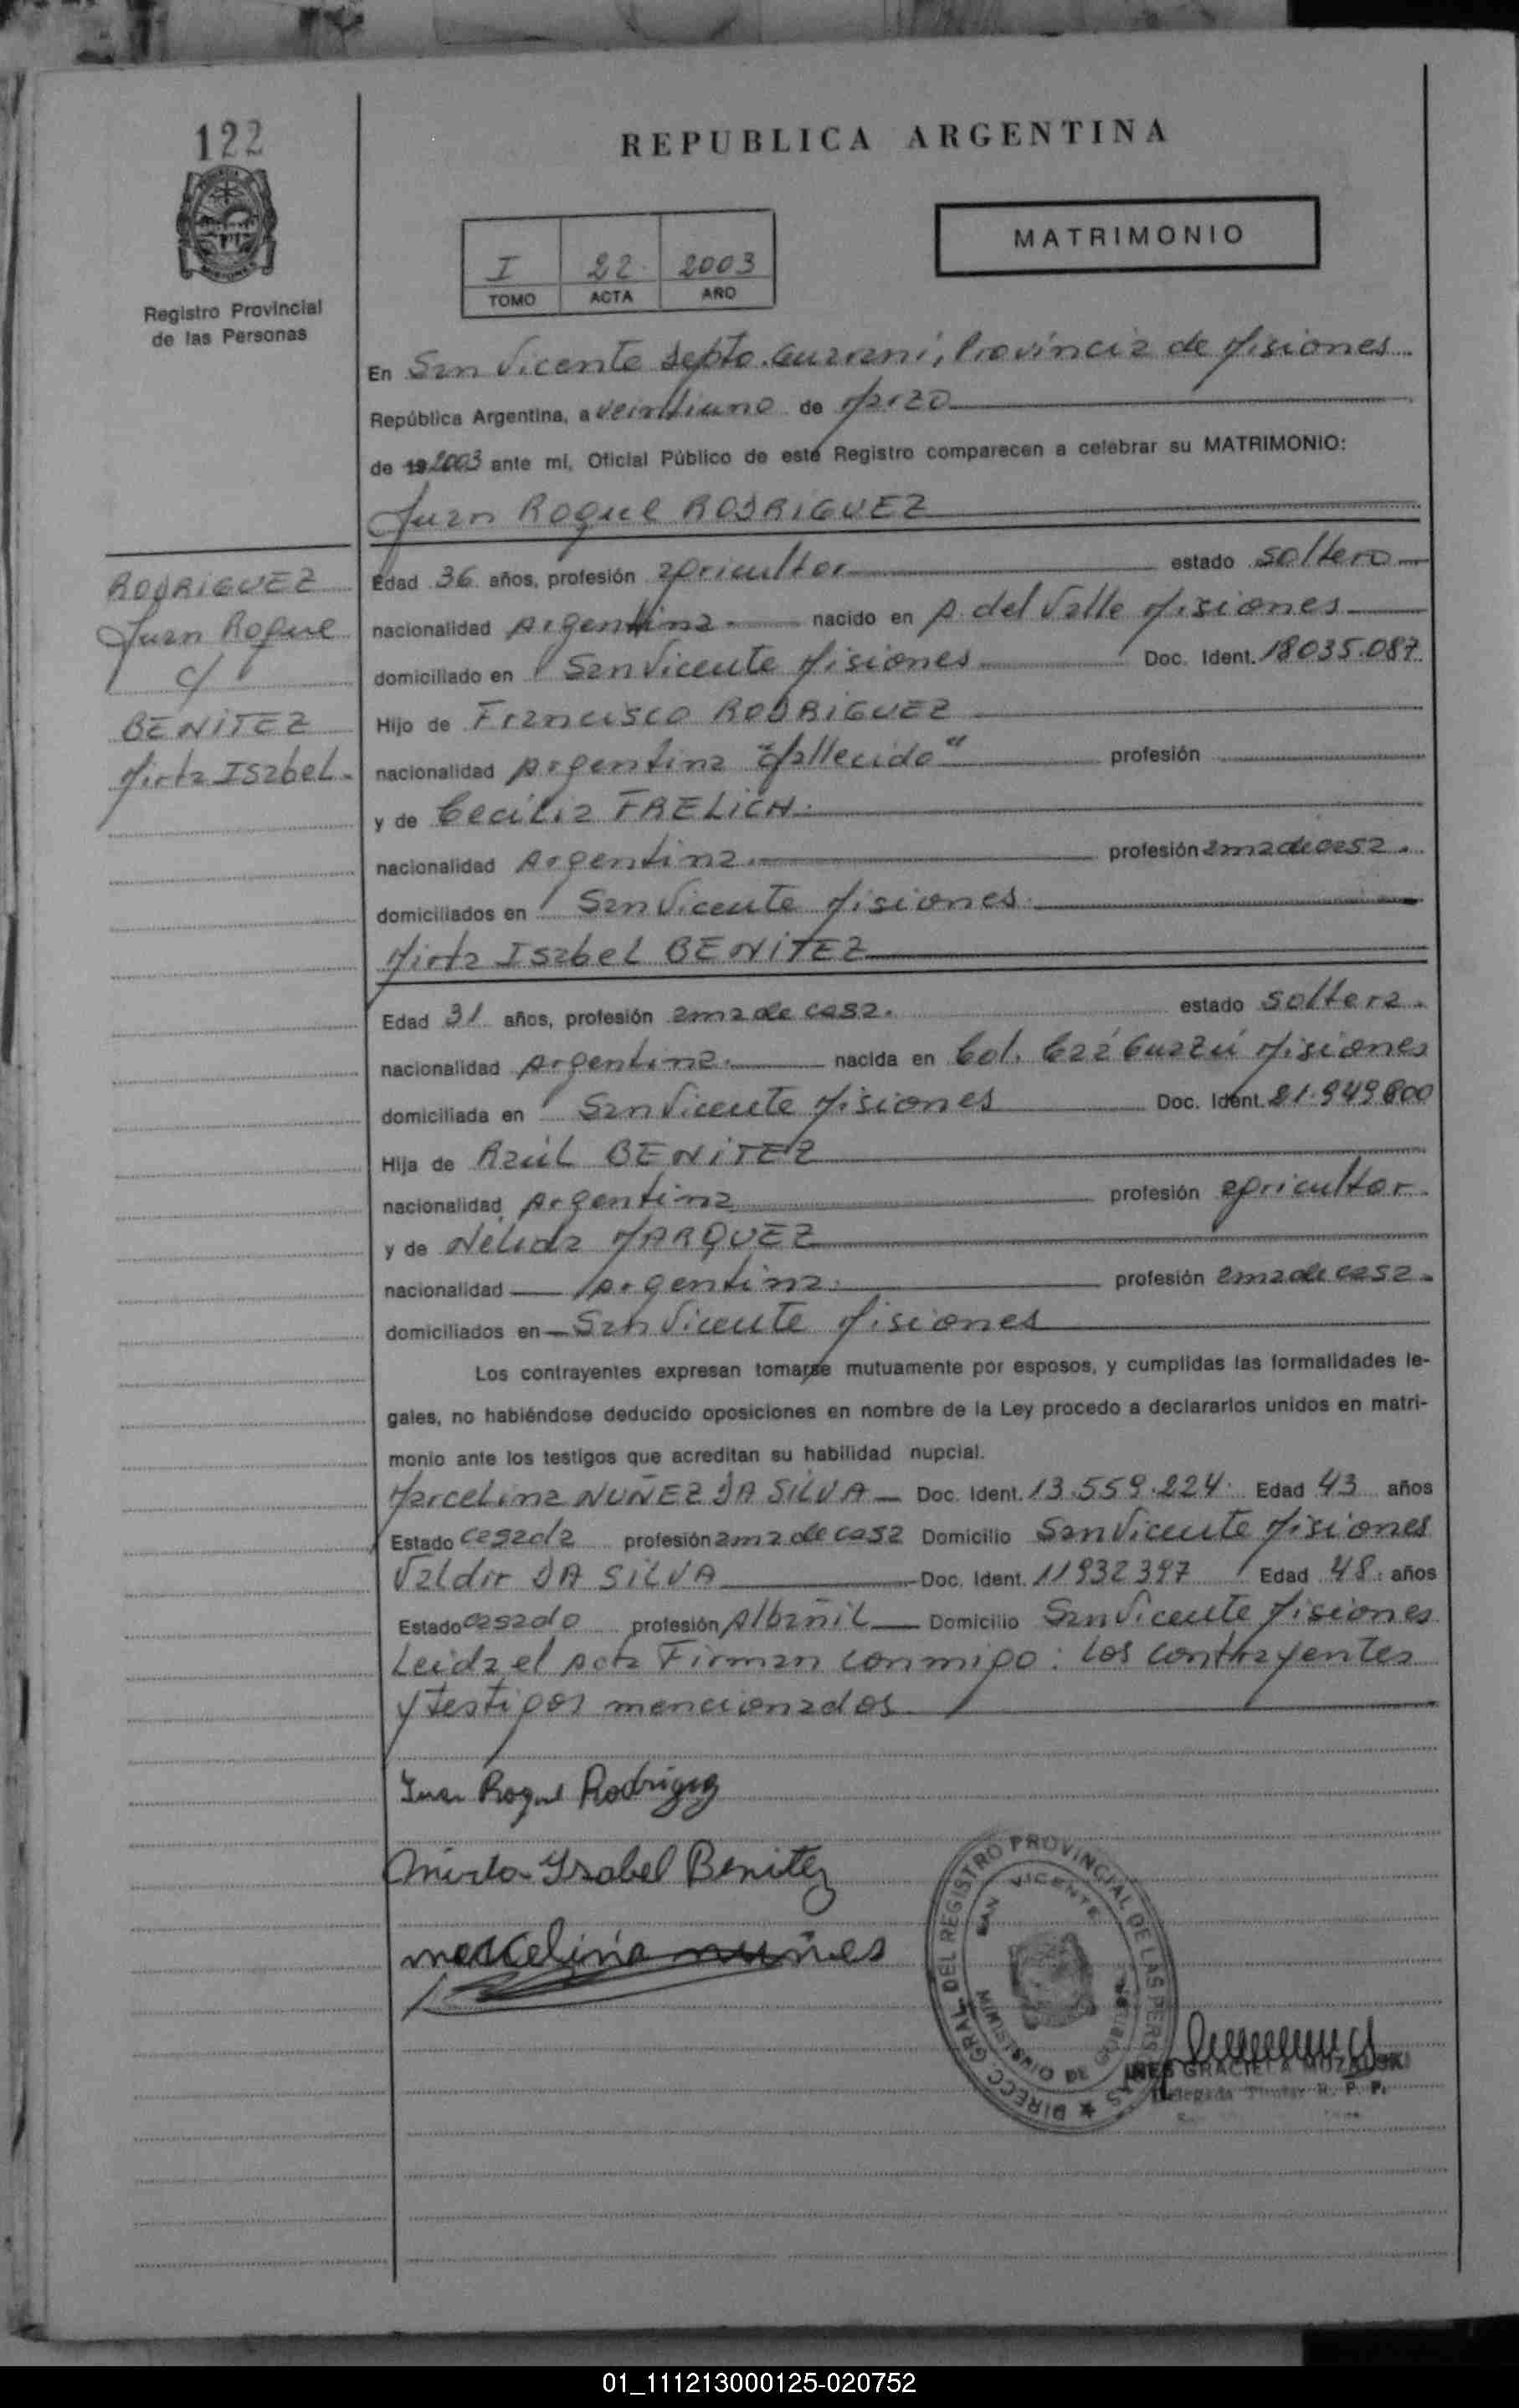 122
REPUBLICA ARGENTINA
MATRIMONIO
I 22 2003
TOMO ACTA AÑO
Registro Provincial
de las Personas
En San Vicente Depto. Guaraní, Provincia de Misiones
República Argentina, a veintiuno de Marzo
de 19 2003 ante mí, Oficial Público de este Registro comparecen a celebrar su MATRIMONIO:
Juan Roque RODRIGUEZ
RODRIGUEZ
Juan Roque
c/
BENITEZ
Mirta Isabel.
Edad 36 años, profesión agricultor estado soltero
nacionalidad Argentina. nacido en A. del Valle Misiones
domiciliado en San Vicente Misiones Doc. Ident. 18035.087
Hijo de Francisco RODRIGUEZ
nacionalidad Argentina "fallecido" profesión
y de Cecilia FRELICH.
nacionalidad Argentina. profesión ama de casa.
domiciliados en San Vicente Misiones
Mirta Isabel BENITEZ
Edad 31 años, profesión ama de casa. estado soltera.
nacionalidad Argentina. nacida en Col. Caá Guazú Misiones
domiciliada en San Vicente Misiones Doc. Ident. 21.949.800
Hija de Raúl BENITEZ
nacionalidad Argentina profesión agricultor.
y de Nélida MARQUEZ
nacionalidad Argentina. profesión ama de casa.
domiciliados en San Vicente Misiones
Los contrayentes expresan tomarse mutuamente por esposos, y cumplidas las formalidades le-
gales, no habiéndose deducido oposiciones en nombre de la Ley procedo a declararlos unidos en matri-
monio ante los testigos que acreditan su habilidad nupcial.
Marcelina NUÑEZ DA SILVA Doc. Ident. 13.559.224. Edad 43 años
Estado casada profesión ama de casa Domicilio San Vicente Misiones
Valdir DA SILVA Doc. Ident. 11932397 Edad 48. años
Estado casado profesión Albañil Domicilio San Vicente Misiones
Leida el Acta Firman conmigo: los contrayentes
y testigos mencionados
Juan Roque Rodriguez
Mirta Ysabel Benitez
marcelina nuñes
DIRECC. GRAL. DEL REGISTRO PROVINCIAL DE LAS PERSONAS
SAN VICENTE
MINISTERIO DE GOBIERNO
INES GRACIELA
Delegada Titular R. P. P.
01_111213000125-020752